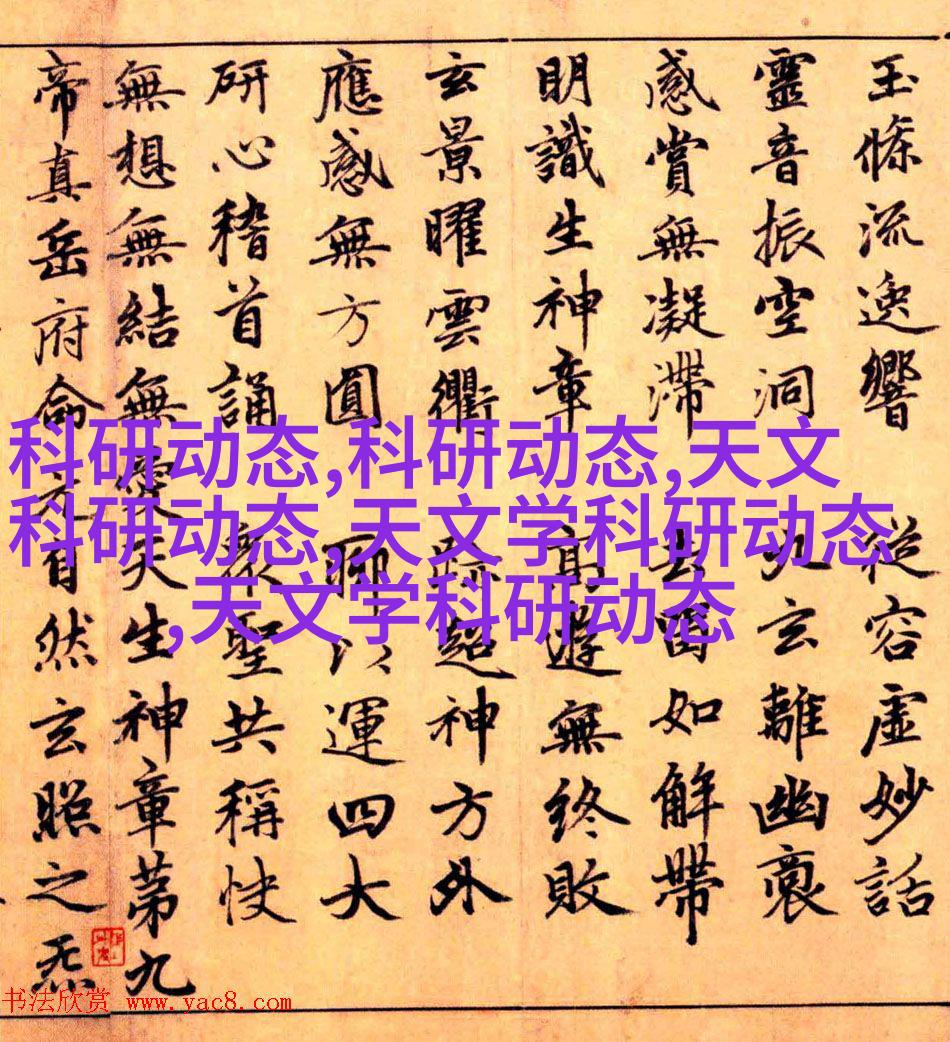 玉條流逸響 從容虛妙話
靈音振空洞 九玄離幽裔
感賞無凝滯 去留如解帶
明識生神章 高遊無終敗
玄景曜雲衢 跡超神方外
應感無方圓 聊以運四大
研心稽首誦 衆聖共稱快
無想無結無愛天生神章第九
帝真岳府命元自然玄照之炁
科研动态,科研动态,天文
科研动态,天文学科研动态
,天文学科研动态
书法欣赏 www.yac8.com